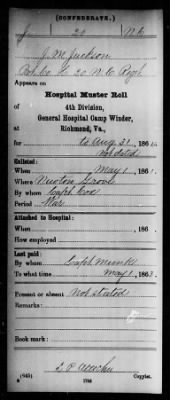 (CONFEDERATE.)
J 20 N.C.
J. M. Jackson
Co. H. 20 N. C. Regt
Appears on
Hospital Muster Roll
of
4th Division,
General Hospital Camp Winder,
Richmond, Va.,
for to Aug 31, 186
Not dated
Enlisted:
When May 1, 186
Where Newton Grove
By whom Capt Cox
Period War
Attached to Hospital:
When , 186 .
How employed
Last paid:
By whom Capt
To what time May 1, 186
Present or absent Not stated
Remarks:
Book mark:
(645)
Copyist.